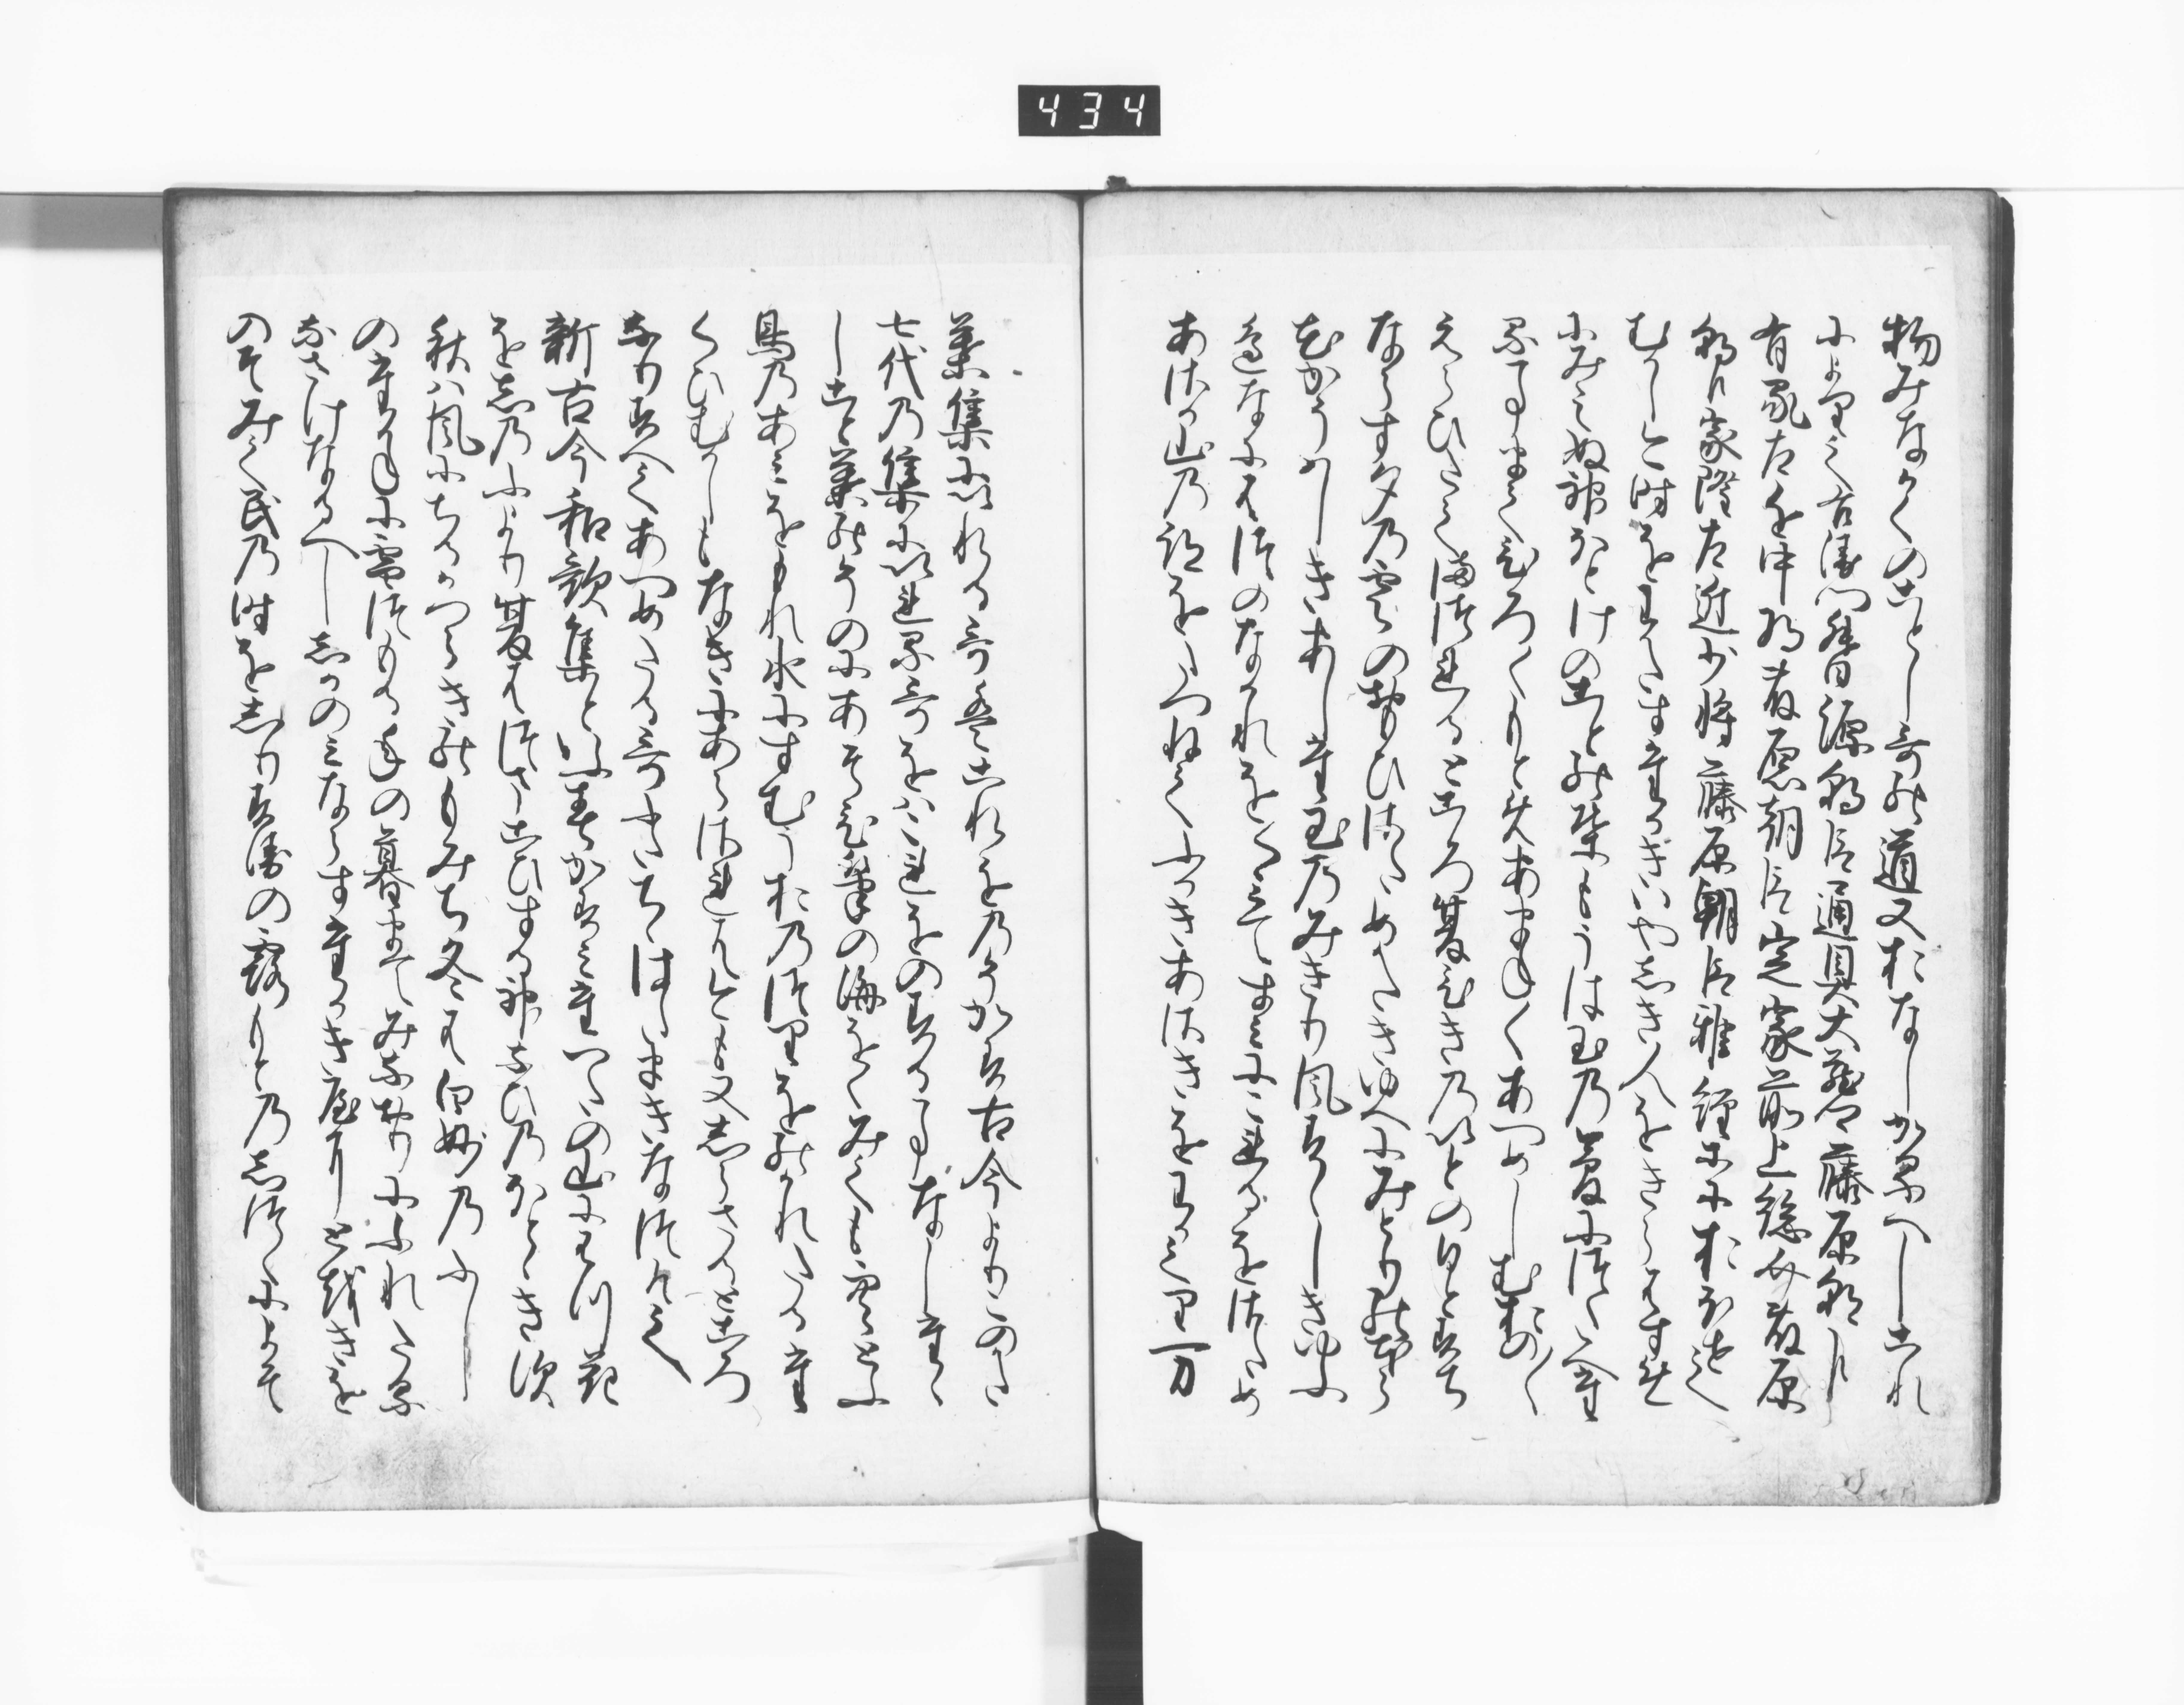 434
物みなかくのことし哥の道又おなしかるへしこれ
によりて右衛門督源朝臣通具大蔵卿藤原朝臣
有家左近中将藤原朝臣定家前上総介藤原
朝臣家隆左近少将藤原朝臣雅経等におほせて
むかし今時をわかたすたかきいやしき人をきらはす
にみえぬ神ほとけのことの葉もうは玉の夢につたへた
る事まてひろくもとめあまねくあつめしむをの〱
えらひたてまつれるところ夏ひきのいとのひとすち
ならす夕の雲のおもひさためかたきゆへにみとりのほら
花かうはしきあした玉のみきり風すゝしきゆふ
へなにはつのなかれをくみてすみにこれるをさため
あさか山の跡をたつねてふかきあさきをわかてり万
葉集にいれる哥はこれをのそかす古今よりこのかた
七代の集にいれる哥をはこれをのする事なしたゝ
しことはのそのにあそひ筆の海をくみても空とふ
鳥のあみをもれ水にすむうおのつりをのかれたるた
くひむかしもなきにあらされは今も又しらさるところ
なりすへてあつめたる哥ふたちはたまきなつけて
新古今和歌集といふ春かすみたつたの山にはつ花
をしのふより夏はつまこひする神なひのほとゝきす
秋は風にちるかつらきのもみち冬は白妙のふし
のたかねに雪つもる年の暮まてみなおりにふれたる
なさけなるへししかのみならすたかき屋にとをきを
のそみて民の時をしりすゑの露もとのしつくによそ